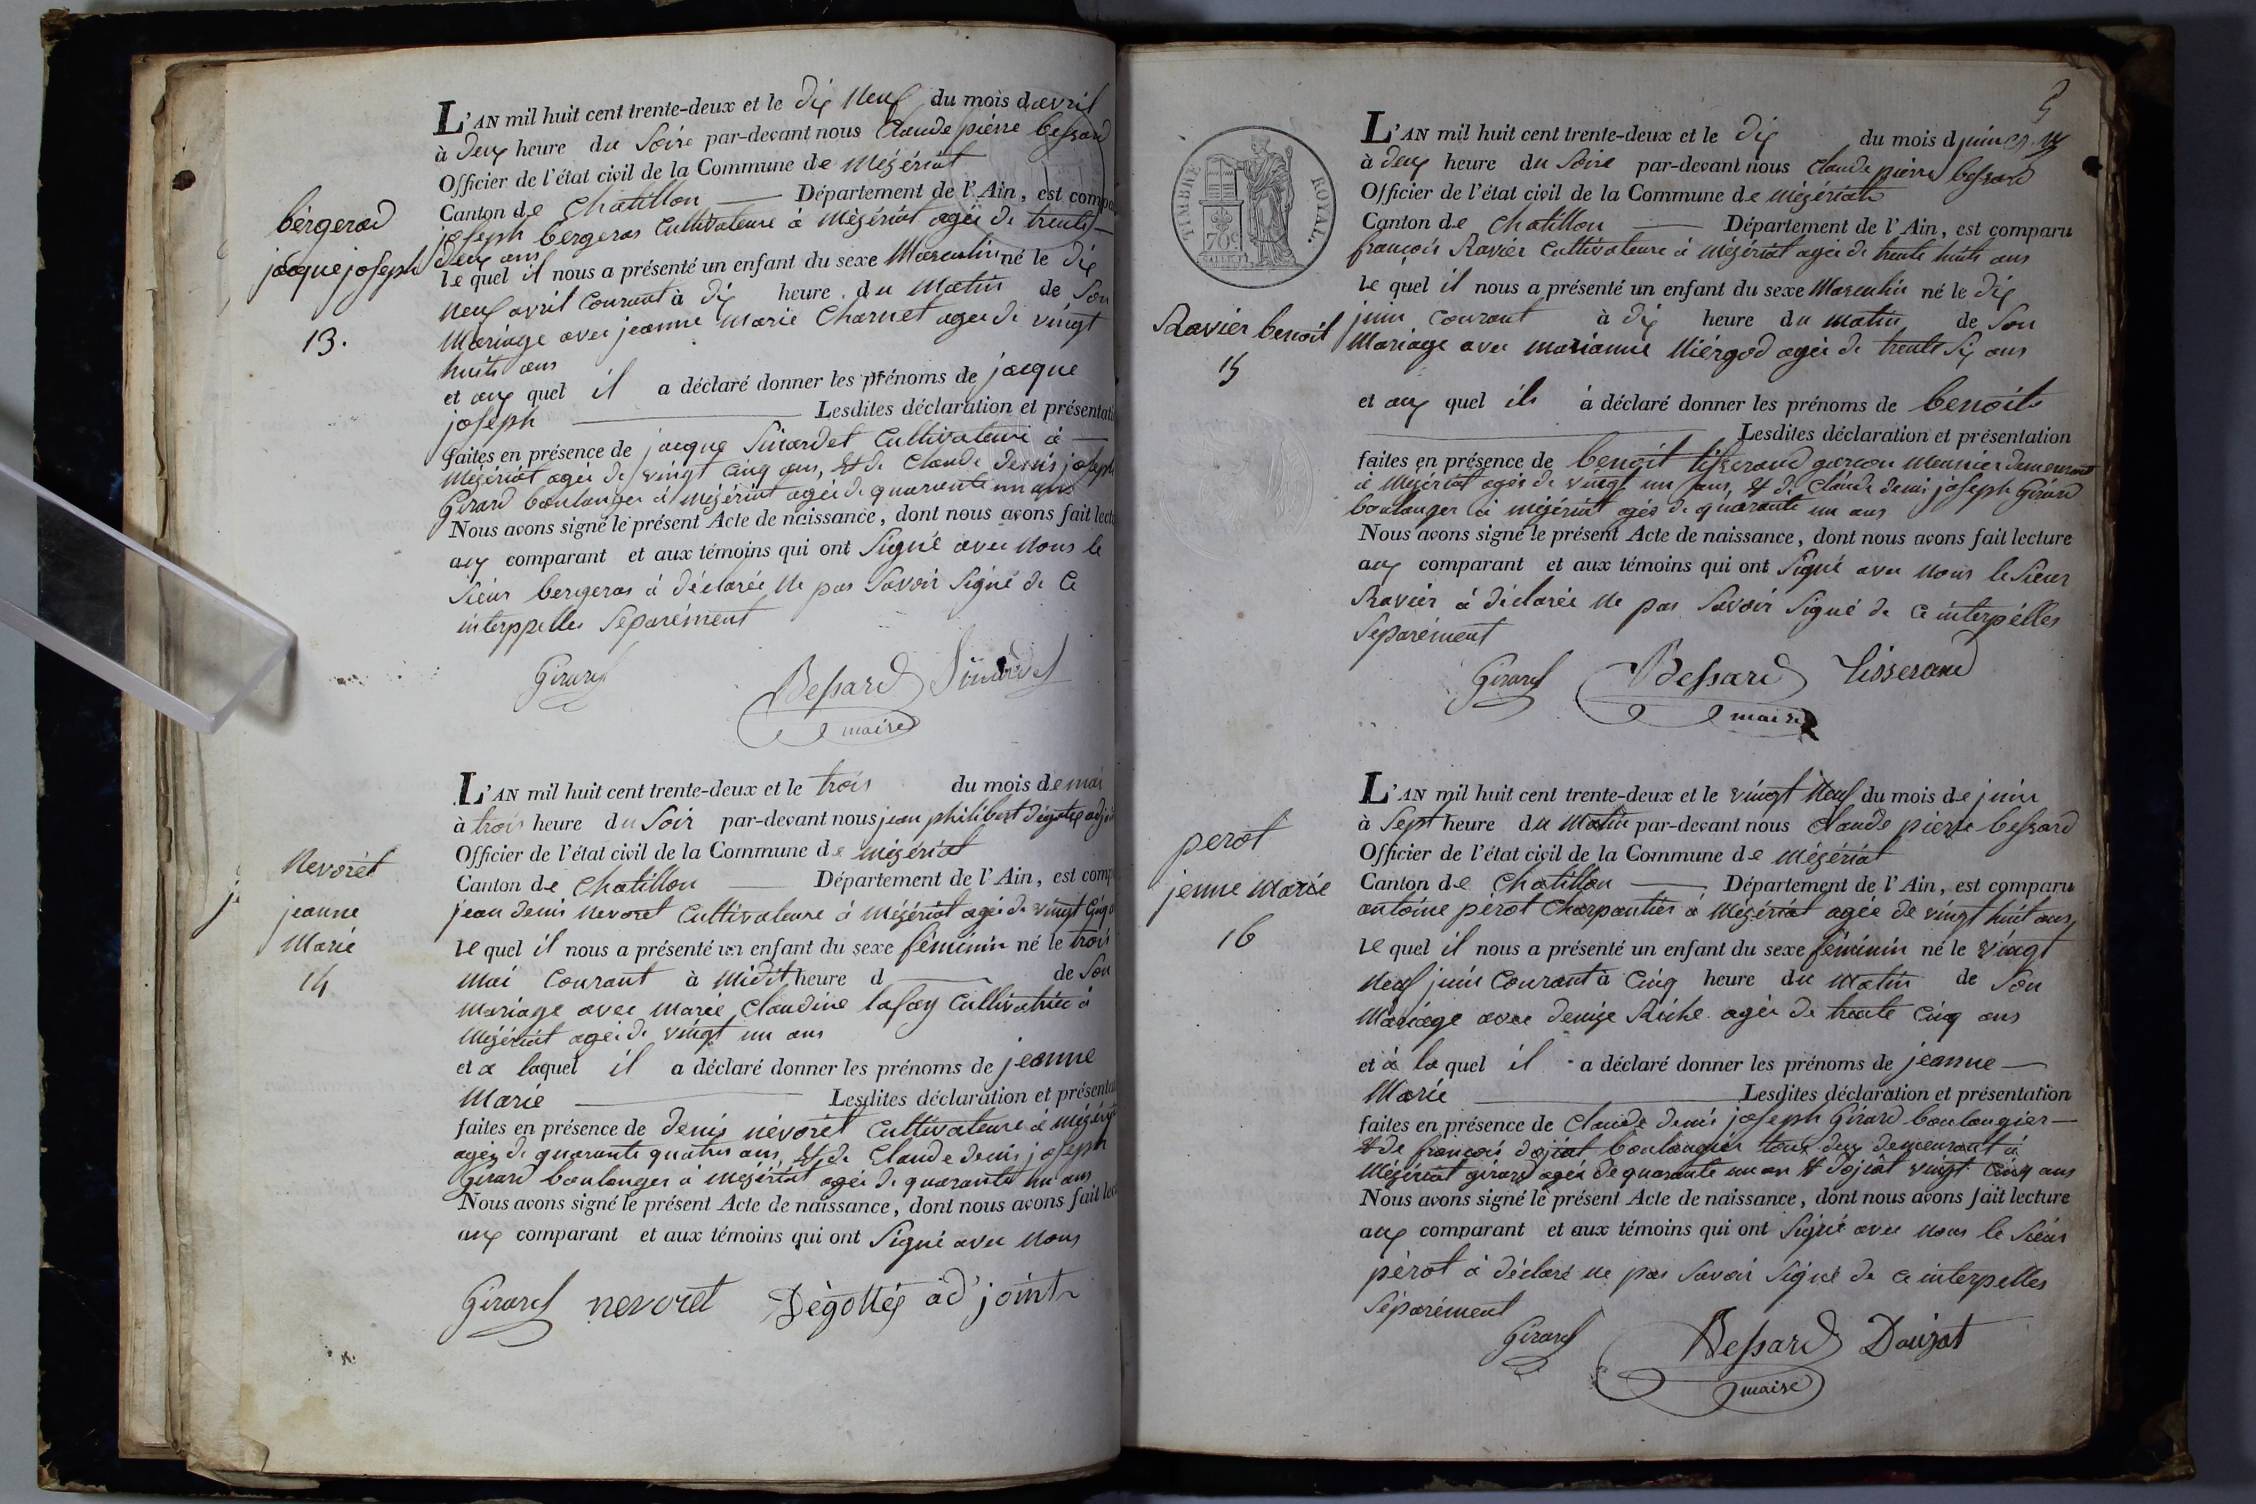 L'AN mil huit cent trente-deux et le dix neuf du mois davril
à deux heure du Soire par-devant nous Claude pierre bessard
Officier de l'état civil de la Commune de mézériat
Canton de Chatillon Département de l'Ain, est comp
bérgerad
jacque joseph
13.
joseph bergeras Cultivateure à Mézériat agée de trente
deux ans
le quel il nous a présenté un enfant du sexe Masculin né le dix
neuf avril Courant à dix heure du Matin de Son
Mariage avec jeanne Marie Charnet agée de vingt
huits ans
et aux quel il a déclaré donner les prénoms de jacque
joseph Lesdites déclaration et présentati
faites en présence de jacque Sirardet Cultivateure à
Mézériat agée de vingt Cinq ans, et de Claude Denis joseph
Girard boulanger à Mézériat agée de quarante un ans
Nous avons signé le présent Acte de naissance, dont nous avons fait lect
aux comparant et aux témoins qui ont Signé avec Nous le
Sieur bergeras à déclarée Ne pas Savoir Signé de Ce
interppelles Séparément
Girard Bessard
maire
L'AN mil huit cent trente-deux et le trois du mois de mai
à trois heure du Soir par-devant nous jean philibert Dégottex adj
Officier de l'état civil de la Commune de mézériat
Canton de Chatillon Département de l'Ain, est comp
Nevorét
jeanne
Marie
14
jean denis nevoret Cultivateure à Mézériat agée de vingt Cinq
le quel il nous a présenté un enfant du sexe féminin né le trois
Mai Courant à Midit heure d de Son
Mariage avec Marie Claudine lafay Cultivatrice à
Mézériat agée de vingt un ans
et a laquel il a déclaré donner les prénoms de jeanne
Marie Lesdites déclaration et présenta
faites en présence de denis névorét Cultivateure à Mézéri
agée de quarante quatres ans, et de Claude denis joseph
Girard boulanger à Mézériat agée de quarante un ans
Nous avons signé le présent Acte de naissance, dont nous avons fait lec
aux comparant et aux témoins qui ont Signé avec Nous
Girard nevoret Dégottex ad'joint
5
L'AN mil huit cent trente-deux et le dix du mois djuin
à deux heure du Soire par-devant nous Claude pierre bessard
Officier de l'état civil de la Commune de Mézériat
Canton de Chatillon Département de l'Ain, est comparu
TIMBRE ROYAL.
70c
Ravier benoit
15
françois Ravier Cultivateure à Mézériat agée de trente huits ans
le quel il nous a présenté un enfant du sexe Masculin né le dix
juin courant à dix heure du matin de Son
Mariage avec marianne Niérgod agée de trente Six ans
et aux quel il à déclaré donner les prénoms de benoit
Lesdites déclaration et présentation
faites en présence de benoit tisserand garçon Meunier demeurant
à Mézériat agée de vingt un ans, et de Claude denis joseph Girard
boulanger à mézériat agée de quarante un ans
Nous avons signé le présent Acte de naissance, dont nous avons fait lecture
aux comparant et aux témoins qui ont Signé avec Nous le Sieur
Ravier à déclarée Ne pas Savoir Signé de Ce interpélles
Séparément
Girard Bessard Tisserand
maire
L'AN mil huit cent trente-deux et le vingt Neuf du mois de juin
à Sept heure du Matin par-devant nous Claude pierre bessard
Officier de l'état civil de la Commune de Mézériat
Canton de Chatillon Département de l'Ain, est comparu
perot
jenne Marie
16
antoine pérot Charpantier à Mézériat agée de vingt huit ans
le quel il nous a présenté un enfant du sexe féminin né le vingt
Neuf juin Courant à Cinq heure du Matin de Son
Mariage avec denize Riche agée de trente Cinq ans
et à la quel il a déclaré donner les prénoms de jeanne
Marie Lesdites déclaration et présentation
faites en présence de Claude denis joseph Girard boulangier
et de françois dojiat boulangier tous deux demeurant à
Mézériat girard agée de quarante un an et dojiat vingt Cinq ans
Nous avons signé le présent Acte de naissance, dont nous avons fait lecture
aux comparant et aux témoins qui ont Signé avec Nous le Sieur
pérot à déclaré ne pas Savoir Signé de Ce interpelles
Séparément
Girard Bessard Doujat
maire